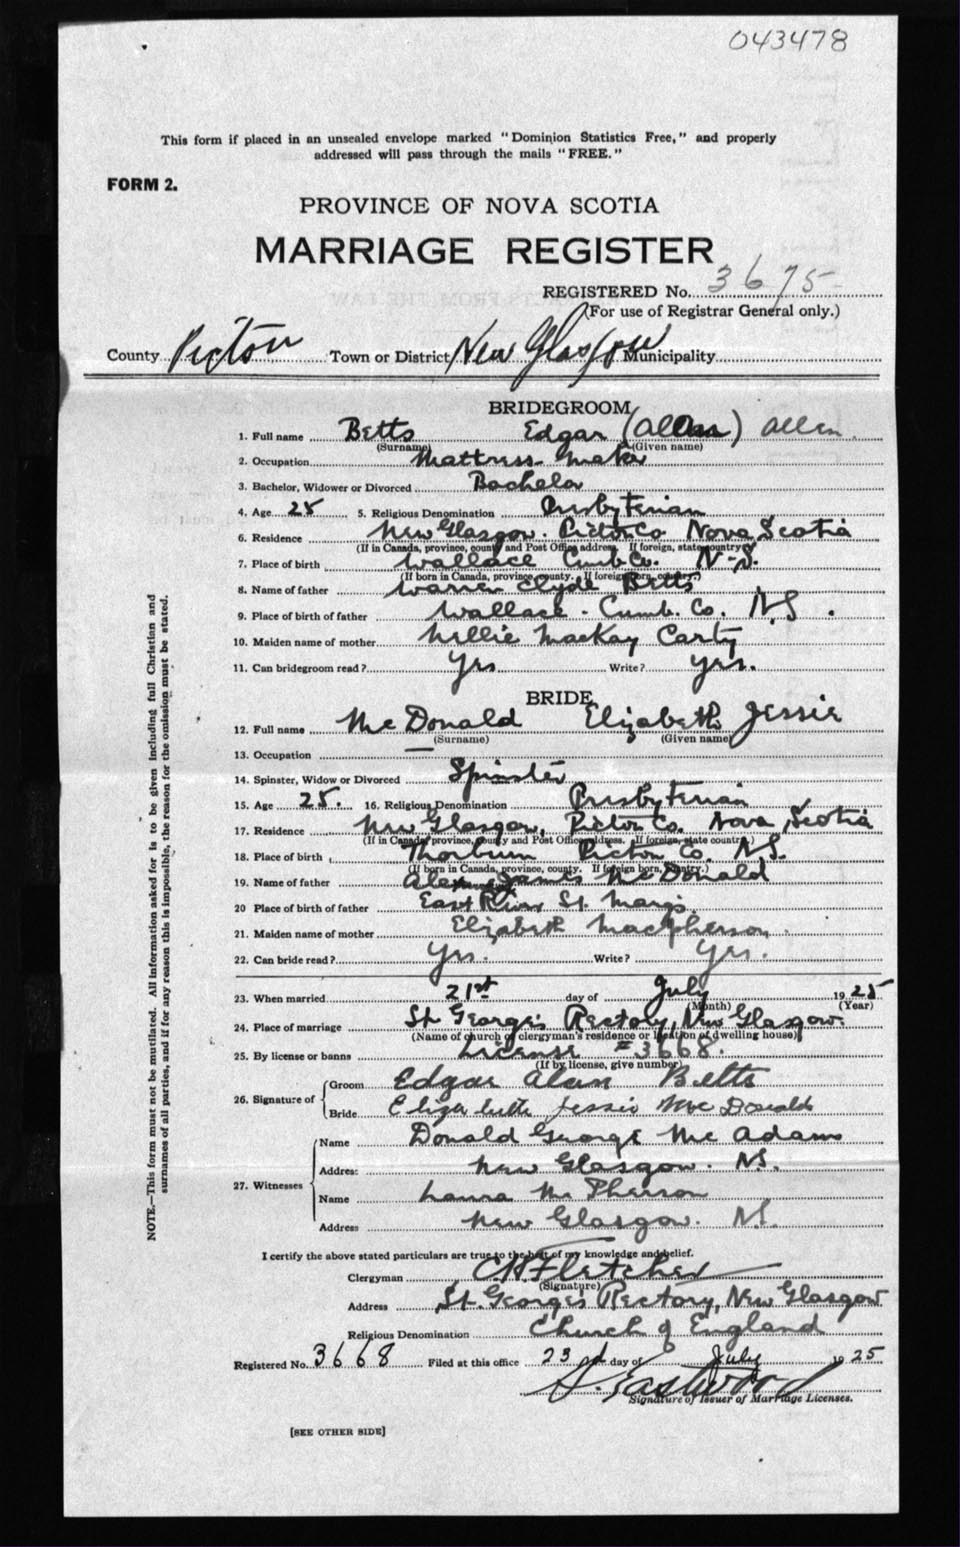 043478
This form if placed in an unsealed envelope marked "Dominion Statistics Free," and properly
addressed will pass through the mails "FREE."
FORM 2.
PROVINCE OF NOVA SCOTIA
MARRIAGE REGISTER
REGISTERED No. 3675
(For use of Registrar General only.)
County Pictou Town or District New Glasgow Municipality
BRIDEGROOM
1. Full name Betts Edgar (Allan) Allen
(Surname) (Given name)
2. Occupation Mattress maker
3. Bachelor, Widower or Divorced Bachelor
4. Age 25 5. Religious Denomination Presbyterian
6. Residence New Glasgow. Pictou Co Nova Scotia
(If in Canada, province, county and Post Office address. If foreign, state country)
7. Place of birth Wallace Cumb Co. N.S.
(If born in Canada, province, county. If foreign born, country.)
8. Name of father Warren Clyde Betts
9. Place of birth of father Wallace - Cumb. Co. N.S.
10. Maiden name of mother Nellie MacKay Carty
11. Can bridegroom read? Yes Write? yes.
BRIDE
12. Full name McDonald Elizabeth Jessie
(Surname) (Given name)
13. Occupation —
14. Spinster, Widow or Divorced Spinster
15. Age 25. 16. Religious Denomination Presbyterian
17. Residence New Glasgow, Pictou Co. Nova Scotia
(If in Canada, province, county and Post Office address. If foreign, state country)
18. Place of birth Thorburn Pictou Co. N.S.
(If born in Canada, province, county. If foreign born, country.)
19. Name of father James McDonald
20 Place of birth of father East River St. Marys
21. Maiden name of mother Elizabeth MacPherson
22. Can bride read? Yes. Write? Yes.
23. When married 21st day of July 1925
(Month) (Year)
24. Place of marriage St. George's Rectory, New Glasgow.
(Name of church or clergyman's residence or location of dwelling house)
25. By license or banns License #3668.
(If by license, give number)
26. Signature of Groom Edgar Alan Betts
Bride Elizabeth Jessie McDonald
27. Witnesses Name Donald George McAdam
Address New Glasgow. N.S.
Name Laura McPherson
Address New Glasgow. N.S.
I certify the above stated particulars are true to the best of my knowledge and belief.
Clergyman Fletcher
(Signature)
Address St. George's Rectory, New Glasgow
Religious Denomination Church of England
Registered No. 3668 Filed at this office 23rd day of July 1925
Eastwood
Signature of Issuer of Marriage Licenses.
[SEE OTHER SIDE]
NOTE.—This form must not be mutilated. All information asked for is to be given including full Christian and
surnames of all parties, and if for any reason this is impossible, the reason for the omission must be stated.